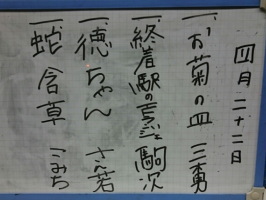 四月二十二日
一、お菊の皿 三勇
一、終着駅のラブジェ 駒次
一、徳ちゃん さん若
一、蛇含草 こみち